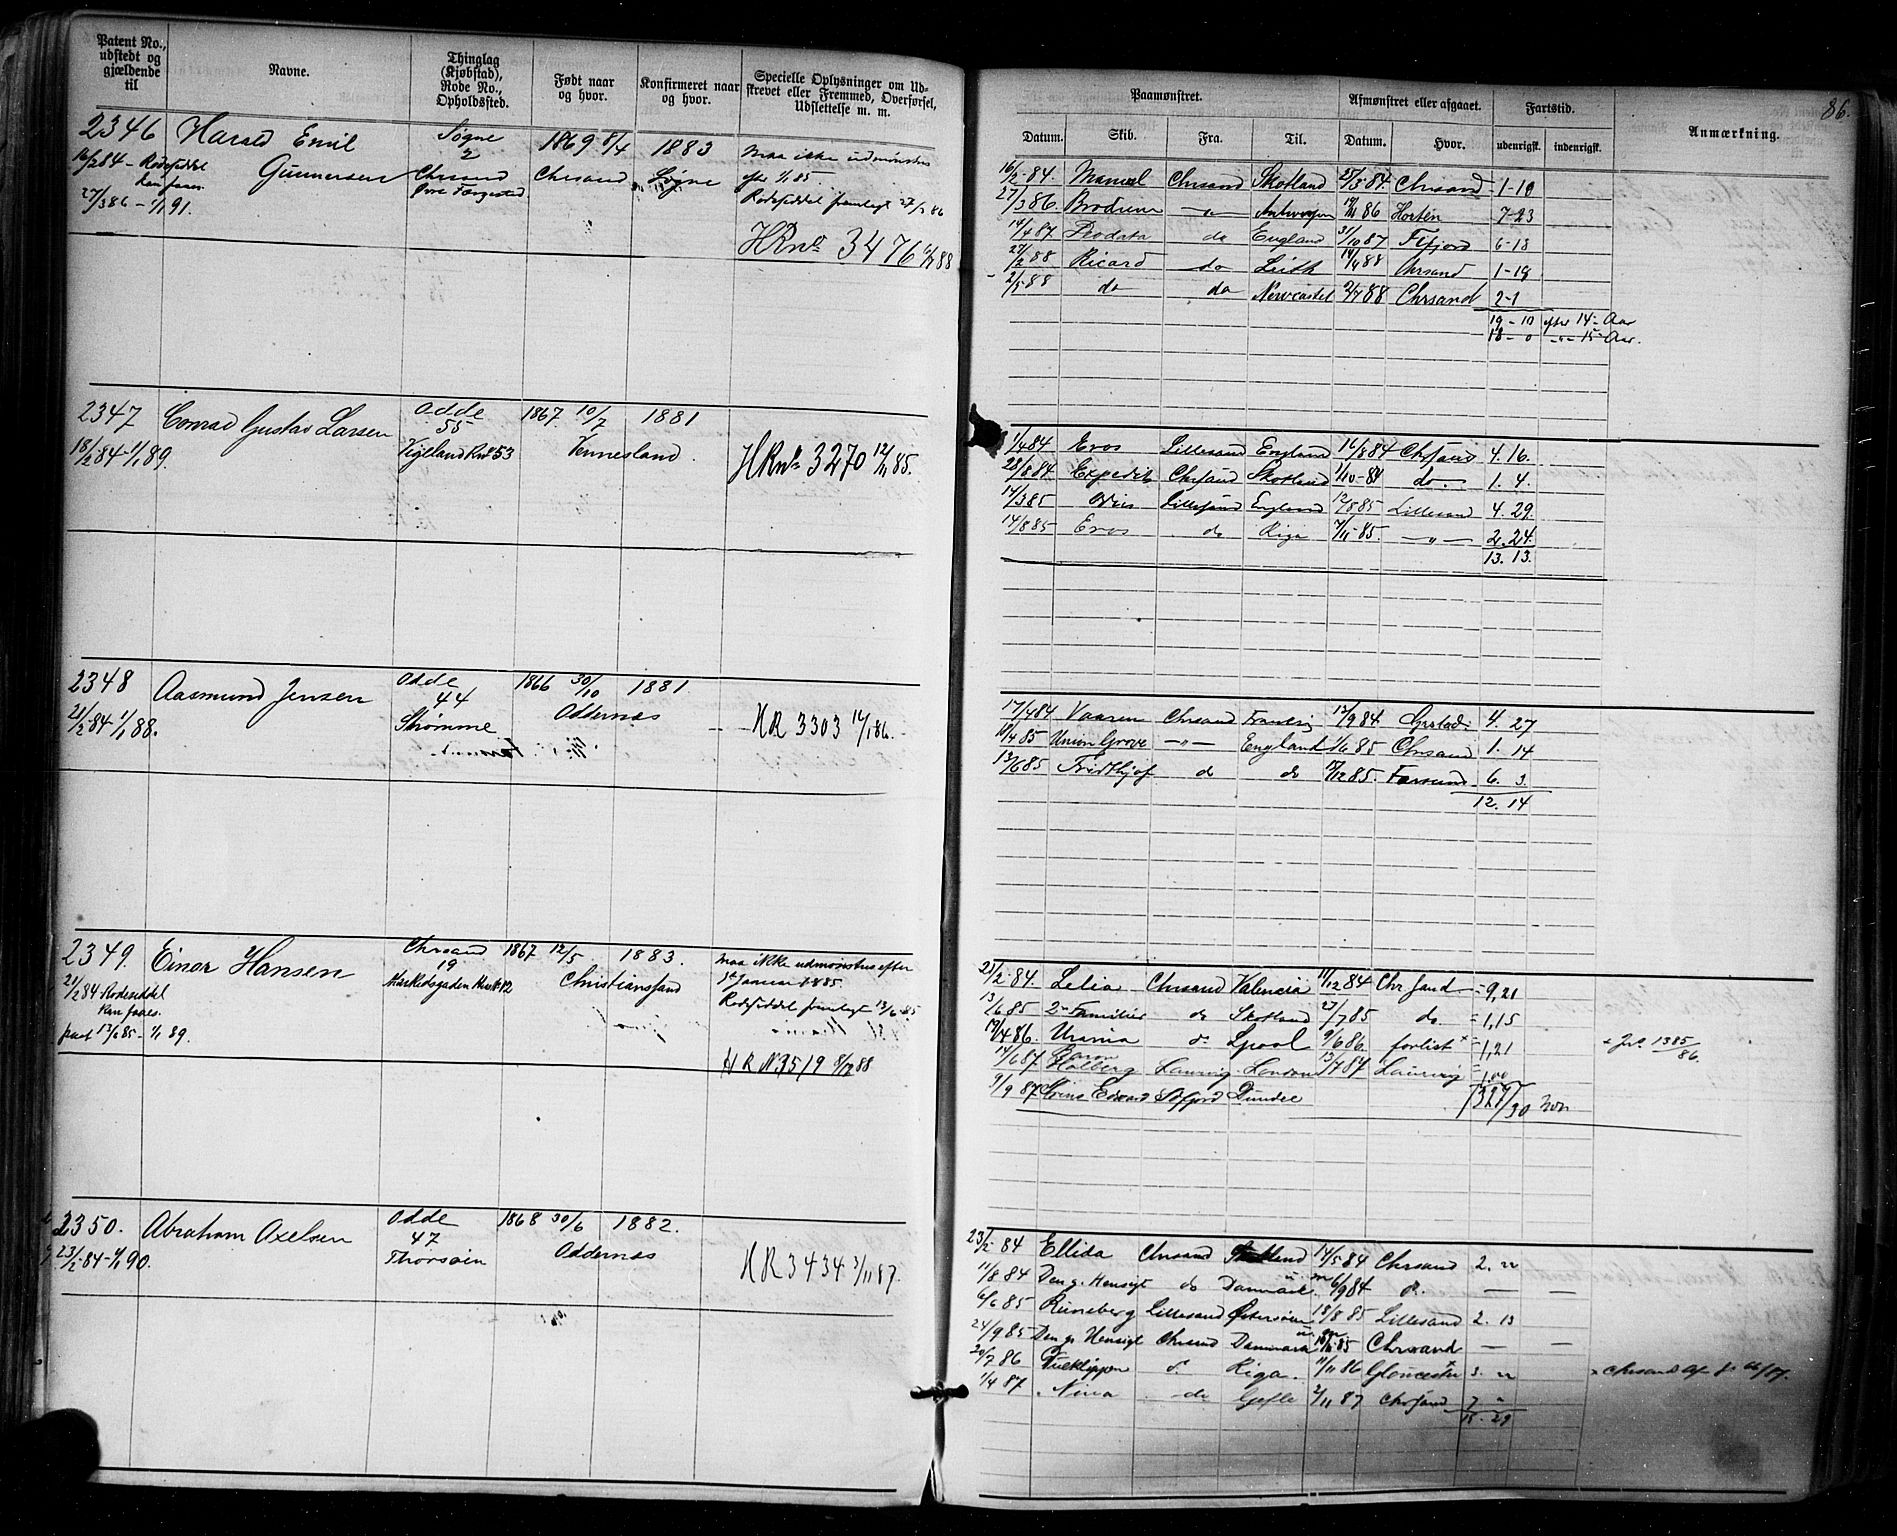 Patent No.,
udstedt og
gjældende
til
Navne.
Thinglag
(Kjøbstad),
Rode No.,
Opholdssted.
Født naar
og hvor.
Konfirmeret naar
og hvor.
Specielle Oplysninger om Ud-
skrevet eller Fremmed, Overførsel,
Udslettelse m. m.
2346 Harald Emil Søgne 1869 8/4 1883 maa ikke udmønstres
16/2 84 – Rodeseddel Gunnersen 2 Chrsand Søgne efter 1/1 85.
kan faaes. Chrsand Rodeseddel fremlagt 27/3 86
27/3 86 – 1/1 91. Øvre Færgested
HRno 3476 6/7 88
2347 Conrad Gustav Larsen Odde 1867 10/7 1881
55
18/2 84 1/1 89. Vigeland Rno 53 Vennesland. HRno 3270 12/11 85.
2348 Aasmund Jensen Odde 1866 30/10 1881.
44
21/2 84 1/1 88. Strømme Oddernæs HR 3303 14/1 86.
2349. Einar Hansen Chrsand 1867 12/5 1883. maa ikke udmønstres efter
19
21/2 84 Rodeseddel Markedsgaden Christianssand 1st Januar 1885.
kan faaes. Rodeseddel fremlagt 13/6 85.
13/6 85 – 1/1 89.
HR No 3519 8/12 88
2350. Abraham Axelsen Odde 1868 30/6 1882.
47
23/2 84 – 1/1 90. Thorsøen Oddernæs HR 3434 3/11 87.
86.
Paamønstret.
Afmønstret eller afgaaet.
Fartstid.
Anmærkning.
Datum. Skib. Fra. Til. Datum. Hvor. udenrigsk. indenrigsk.
16/2 84. Chrsand Skotland 25/3 84. Chrsand 1-10
27/3 86. –"– Antwerpen 86 Horten 7-23
14/4 87. do England 31/10 87 6-18
27/2 88 Ricard do Leith 14/4 88 Chrsand 1-18
2/5 88 do do Newcastel 2/7 88 Chrsand 2-1
19-10 efter 14 Aar
18-0 –"– 15 Aar.
1/4 84 Eros Lillesand England 16/8 84 Chrsand 4. 16.
28/8 84 Expedit Chrsand Skotland 1/10 84 do. 1. 4.
14/3 85 Lillesand England 12/8 85 Lillesand 4. 29.
14/8 85 Eros do Riga 7/11 85. –"– 2. 24.
13. 13.
17/4 84 Vaaren Chrsand 13/9 84 4. 27
18/4 85 Union Grove –"– England 1/6 85 Chrsand 1. 14
13/6 85 Fridthjof do do 15/12 85. Farsund. 6. 3.
12. 14
23/2 84. Lelia Chrsand Valencia 11/12 84 Chrsand 9,21
13/6 85 2 Familier do Skotland 27/7 85 do. 1,15
19/4 86. Urania do Lpool 9/6 86. forlist x 1,21 x Jno 1385/86.
14/6 87 Baron
Holberg Laurvig London 13/7 87 Laurvig
9/9 87 Prins Edward Dundee
23/2 84 Ellida Chrsand 14/5 84 Chrsand 2. "
11/8 84 Den g. Hensigt do Danmark 6/9 84 do. – –
6/6 85 Runeberg Lillesand Østersøen 18/8 85 Lillesand 2. 13
24/9 85 Den g. Hensigt Chrsand Danmark 85 Chrsand – –
20/7 86 do Riga. 11/11 86 Gloucester x 3. "
1/4 87 Nina do Gefle 2/11 87 Chrsand 7 "
15. 29